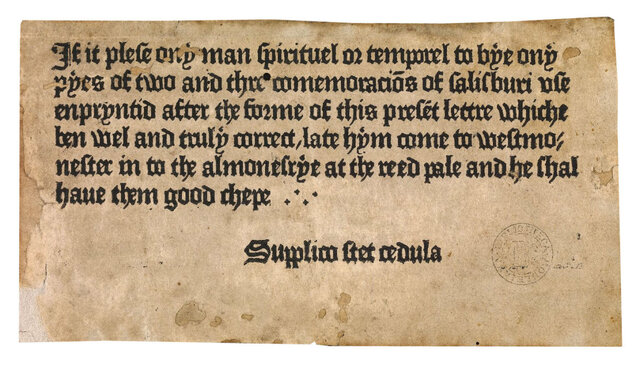 If it plese ony man spirituel or temporel to bye ony
pyes of two and thre comemoraciōs of salisburi vse
enpryntid after the forme of this presēt lettre whiche
ben wel and truly correct, late hym come to westmo-
nester in to the almonesrye at the reed pale and he shal
haue them good chepe
Supplico stet cedula